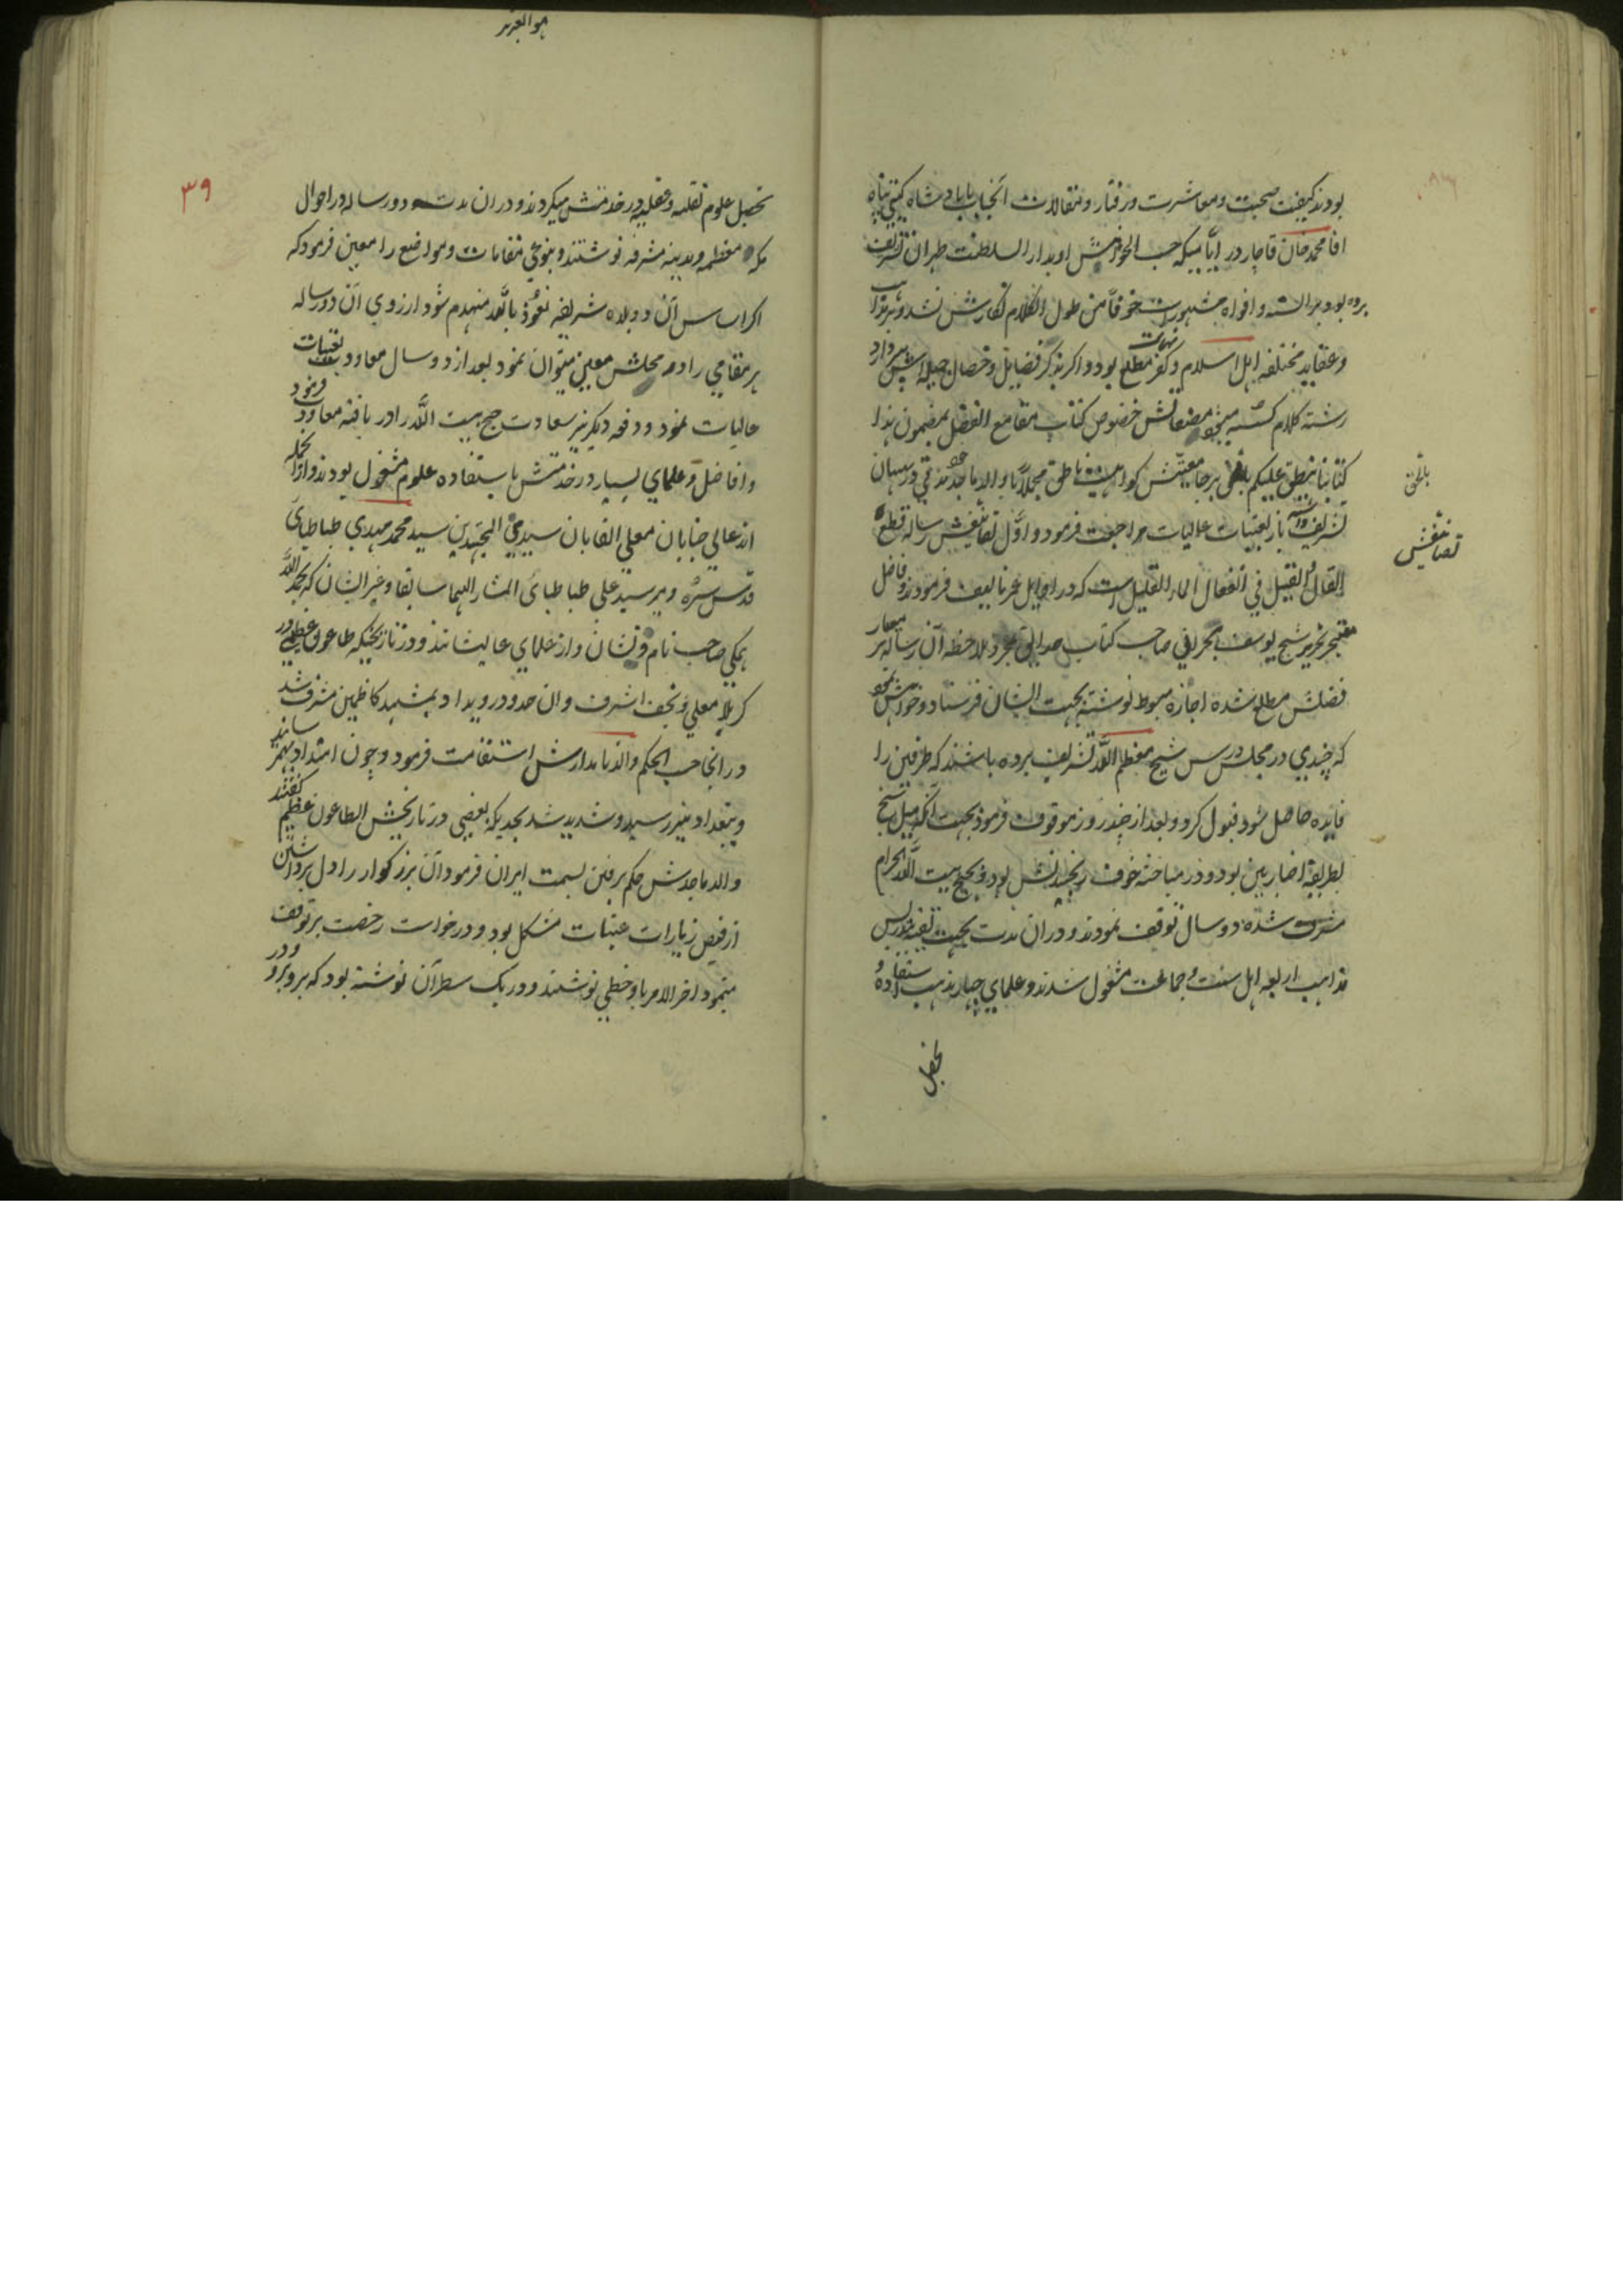 بودند کیفیت صحبت و معاشرت و رفتار و مقالات آنجناب با پادشاه گیتی پناه
اقا محمد خان قاجار در ایّامیکه حسب الخواهش او بدار السلطنت طهران تشریف
برده بود بر السنه و افواه مشهور است خوفاً من طول الکلام نگارش نشد و بر مذاهب
و عقاید مختلفه اهل اسلام و کفر بنهایت مطلع بود و اگر بذکر فضایل و خصال جمیله اش پردازد
رشته کلام گسسته میشود مصنفاتش خصوص کتاب مقامع الفضل بمضمون هذا
کتابنا ینطق علیکم بالحق بر جامعیتش گواهیست ناطق مجملاً با والد ماجد خود
تشریف داشته باز بعتبات عالیات مراجعت فرمود و اوّل تصانیفش رساله قطع
القال و القیل فی انفعال الماء القلیل است که در اوایل عمر تالیف فرمودند و فاضل
متبحر نحریر شیخ یوسف بحرانی صاحب کتاب حدایق بمجرد ملاحظه آن رساله بر معیار
فضلش مطلع شده اجازه مبسوط نوشته بجهت ایشان فرستاد و خواهش نمود
که چندی در مجلس درس شیخ معظم اللّه تشریف برده باشند که طرفین را
فایده حاصل شود قبول کرد و بعد از چند روز موقوف فرمود بجهت آنکه میل شیخ
بطریقه اخباریین بود و در مباحثه خوف رنجیدنش بود و بحج بیت اللّه الحرام
مشرف شده دو سال توقف نمودند و در ان مدت بجهت تقیه بتدریس
مذاهب اربعه اهل سنت و جماعت مشغول شدند و علمای چهار مذهب استفاده و
تحصیل
بالحق
تصانیفش
هو العزیز
۳۹
تحصیل علوم نقلیه و عقلیه در خدمتش میکردند و در ان مدت دو رساله در احوال
مکه معظمه و مدینه مشرفه نوشتند و بنوعی مقامات و مواضع را معین فرمود که
اگر اساس آن دو بلاه شریفه نعوذ باللّه منهدم شود از روی آن دو رساله
هر مقامی را در محلش معین میتوان نمود بعد از دو سال معاودت بعتبات
عالیات نمود و دفعه دیگر نیز سعادت حج بیت اللّه را دریافته معاودت فرمود
و افاضل و علمای بسیار در خدمتش باستفاده علوم مشغول بودند و از انجمله
اند عالی جنابان معلی القابان سید المجتهدین سید محمد مهدی طباطبای
قدّس سرّه و میر سید علی طباطبائی المشار الیهما سابقا و غیر ایشان که بحمد اللّه
همگی صاحب نام و نشان و از علمای عالیشانند و در تاریخیکه طاعون عظیمی در
کربلا معلی و نجف اشرف و ان حدود رویداد بمشهد کاظمین مشرف شد
در انجا حسب الحکم والد نامدارش استقامت فرمود و چون امتداد بهمرسانید
و ببغداد نیز رسید و شدید شد بحدیکه بعضی در تاریخش الطاعون عظیم گفتند
والد ماجدش حکم برفتن بسمت ایران فرمود آن بزرگوار را دل برداشتن
از فیض زیارات عتبات مشکل بود و درخواست رخصت بر توقف
مینمود اخر الامر باو خطی نوشتند و در یک سطر آن نوشته بود که برو برو و در